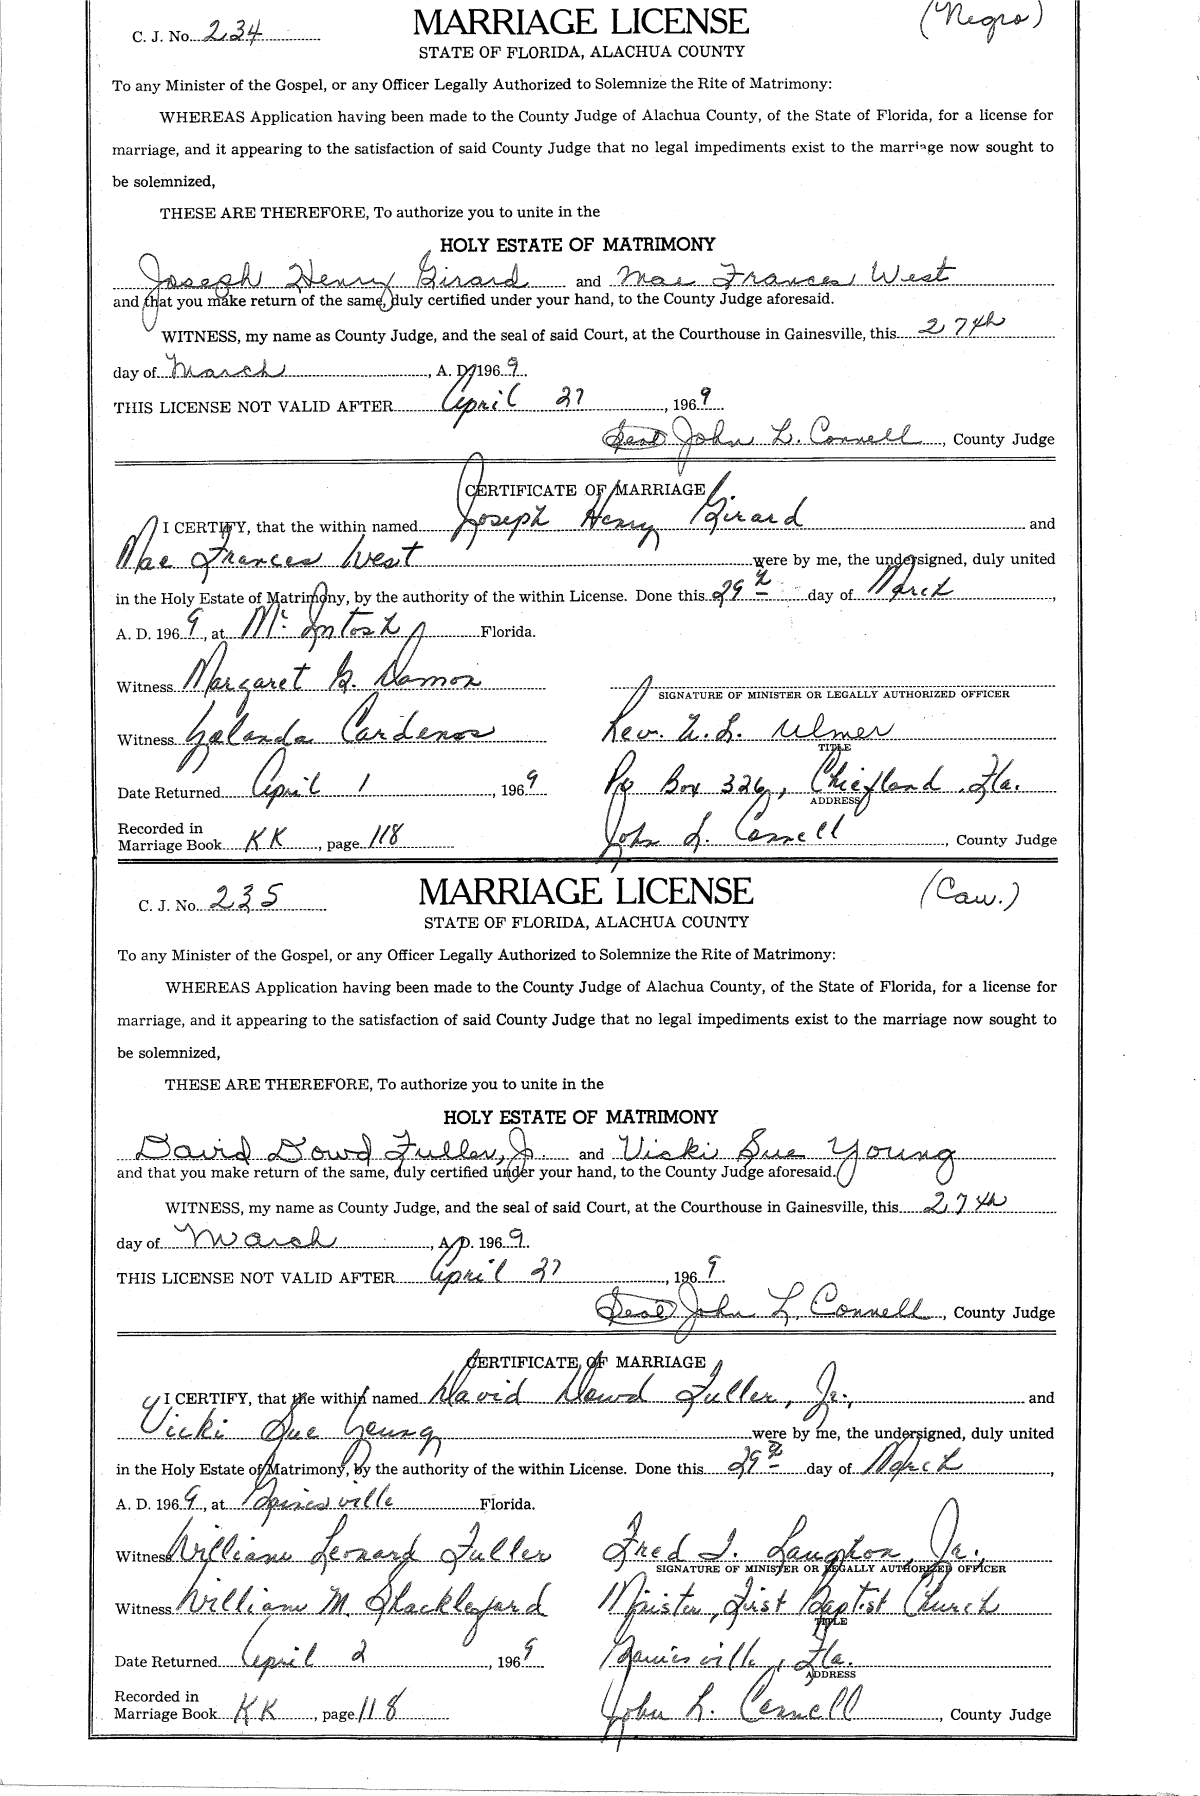 C. J. No. 234
MARRIAGE LICENSE
(Negro)
STATE OF FLORIDA, ALACHUA COUNTY
To any Minister of the Gospel, or any Officer Legally Authorized to Solemnize the Rite of Matrimony:
WHEREAS Application having been made to the County Judge of Alachua County, of the State of Florida, for a license for
marriage, and it appearing to the satisfaction of said County Judge that no legal impediments exist to the marriage now sought to
be solemnized,
THESE ARE THEREFORE, To authorize you to unite in the
HOLY ESTATE OF MATRIMONY
Joseph Henry Girard and Mae Frances West
and that you make return of the same, duly certified under your hand, to the County Judge aforesaid.
WITNESS, my name as County Judge, and the seal of said Court, at the Courthouse in Gainesville, this 27th
day of March, A. D. 1969.
THIS LICENSE NOT VALID AFTER April 27, 1969
(Seal) John L. Connell, County Judge
CERTIFICATE OF MARRIAGE
I CERTIFY, that the within named Joseph Henry Girard and
Mae Frances West were by me, the undersigned, duly united
in the Holy Estate of Matrimony, by the authority of the within License. Done this 29th day of March,
A. D. 1969, at McIntosh Florida.
Witness Margaret G. Damon
SIGNATURE OF MINISTER OR LEGALLY AUTHORIZED OFFICER
Witness Yolanda Cardenos Rev. U. L. Ulmer
TITLE
Date Returned April 1, 1969 PO Box 326, Chiefland, Fla.
ADDRESS
Recorded in
Marriage Book KK, page 118 John L. Connell, County Judge
C. J. No. 235
MARRIAGE LICENSE
(Caw.)
STATE OF FLORIDA, ALACHUA COUNTY
To any Minister of the Gospel, or any Officer Legally Authorized to Solemnize the Rite of Matrimony:
WHEREAS Application having been made to the County Judge of Alachua County, of the State of Florida, for a license for
marriage, and it appearing to the satisfaction of said County Judge that no legal impediments exist to the marriage now sought to
be solemnized,
THESE ARE THEREFORE, To authorize you to unite in the
HOLY ESTATE OF MATRIMONY
David Dowd Fuller, Jr. and Vicki Sue Young
and that you make return of the same, duly certified under your hand, to the County Judge aforesaid.
WITNESS, my name as County Judge, and the seal of said Court, at the Courthouse in Gainesville, this 27th
day of March, A. D. 1969.
THIS LICENSE NOT VALID AFTER April 27, 1969
(Seal) John L. Connell, County Judge
CERTIFICATE OF MARRIAGE
I CERTIFY, that the within named David Dowd Fuller, Jr., and
Vicki Sue Young were by me, the undersigned, duly united
in the Holy Estate of Matrimony, by the authority of the within License. Done this 29th day of March,
A. D. 1969, at Gainesville Florida.
Witness William Leonard Fuller Fred T. Laughon, Jr.,
SIGNATURE OF MINISTER OR LEGALLY AUTHORIZED OFFICER
Witness William M. Shackleford Minister, First Baptist Church
TITLE
Date Returned April 2, 1969 Gainesville, Fla.
ADDRESS
Recorded in
Marriage Book KK, page 118 John L. Connell, County Judge